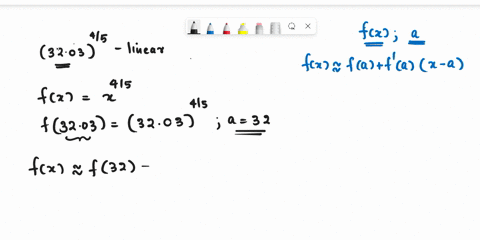 (32.03)^4/5 - linear
f(x) = x^4/5
f(32.03) = (32.03)^4/5 ; a = 32
f(x) ≈ f(32) -
f(x) ; a
f(x) ≈ f(a) + f'(a) (x-a)